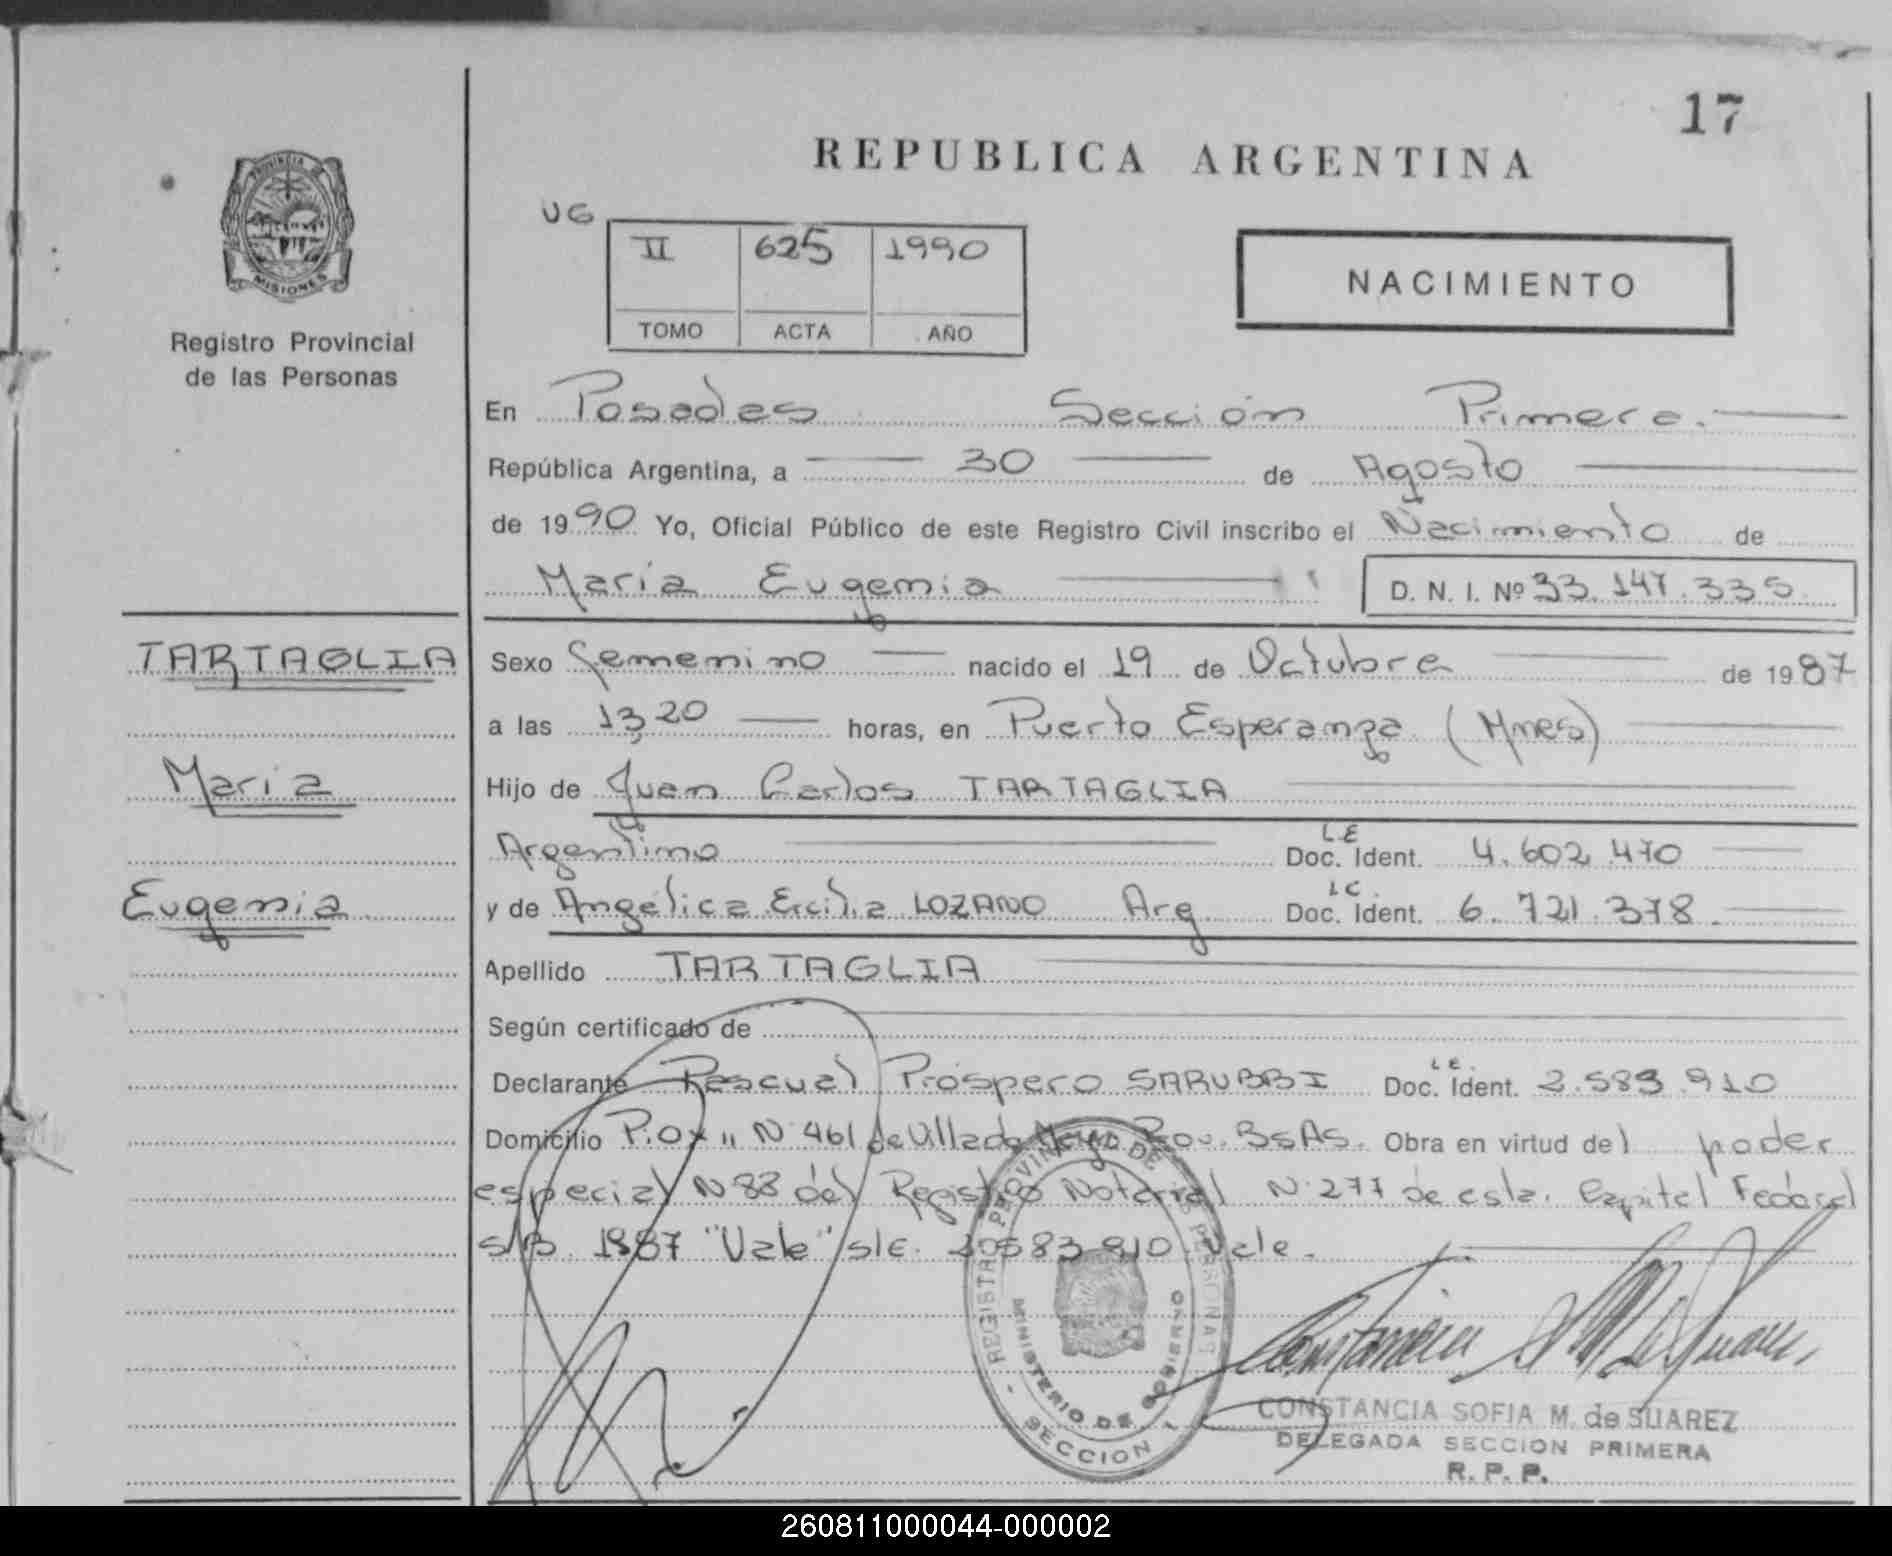 17
REPUBLICA ARGENTINA
PROVINCIA
MISIONES
Registro Provincial
de las Personas
VG
II 625 1990
TOMO ACTA AÑO
NACIMIENTO
En Posadas Sección Primera.
República Argentina, a 30 de Agosto
de 1990 Yo, Oficial Público de este Registro Civil inscribo el Nacimiento de
María Eugenia D. N. I. Nº 33.147.335
TARTAGLIA
Sexo femenino nacido el 19 de Octubre de 1987
a las 13,20 horas, en Puerto Esperanza (Mnes)
María
Hijo de Juan Carlos TARTAGLIA
Argentino L.E Doc. Ident. 4.602.470
Eugenia
y de Angélica Ercilia LOZANO Arg L.C. Doc. Ident. 6.721.378.
Apellido TARTAGLIA
Según certificado de
Declarante Pascual Próspero SARUBBI L.E. Doc. Ident. 2.583.910
Domicilio Pío XII N 461 de Villa de Mayo Prov. BsAs. Obra en virtud del poder
especial N 88 del Registro Notarial N 277 de esta. Capital Federal
s/B 1987 "Vale" s/e. 583 910 Vale.
REGISTRO PROVINCIAL DE LAS PERSONAS
MINISTERIO DE GOBIERNO
SECCION 1
CONSTANCIA SOFIA M. de SUAREZ
DELEGADA SECCION PRIMERA
R. P. P.
260811000044-000002